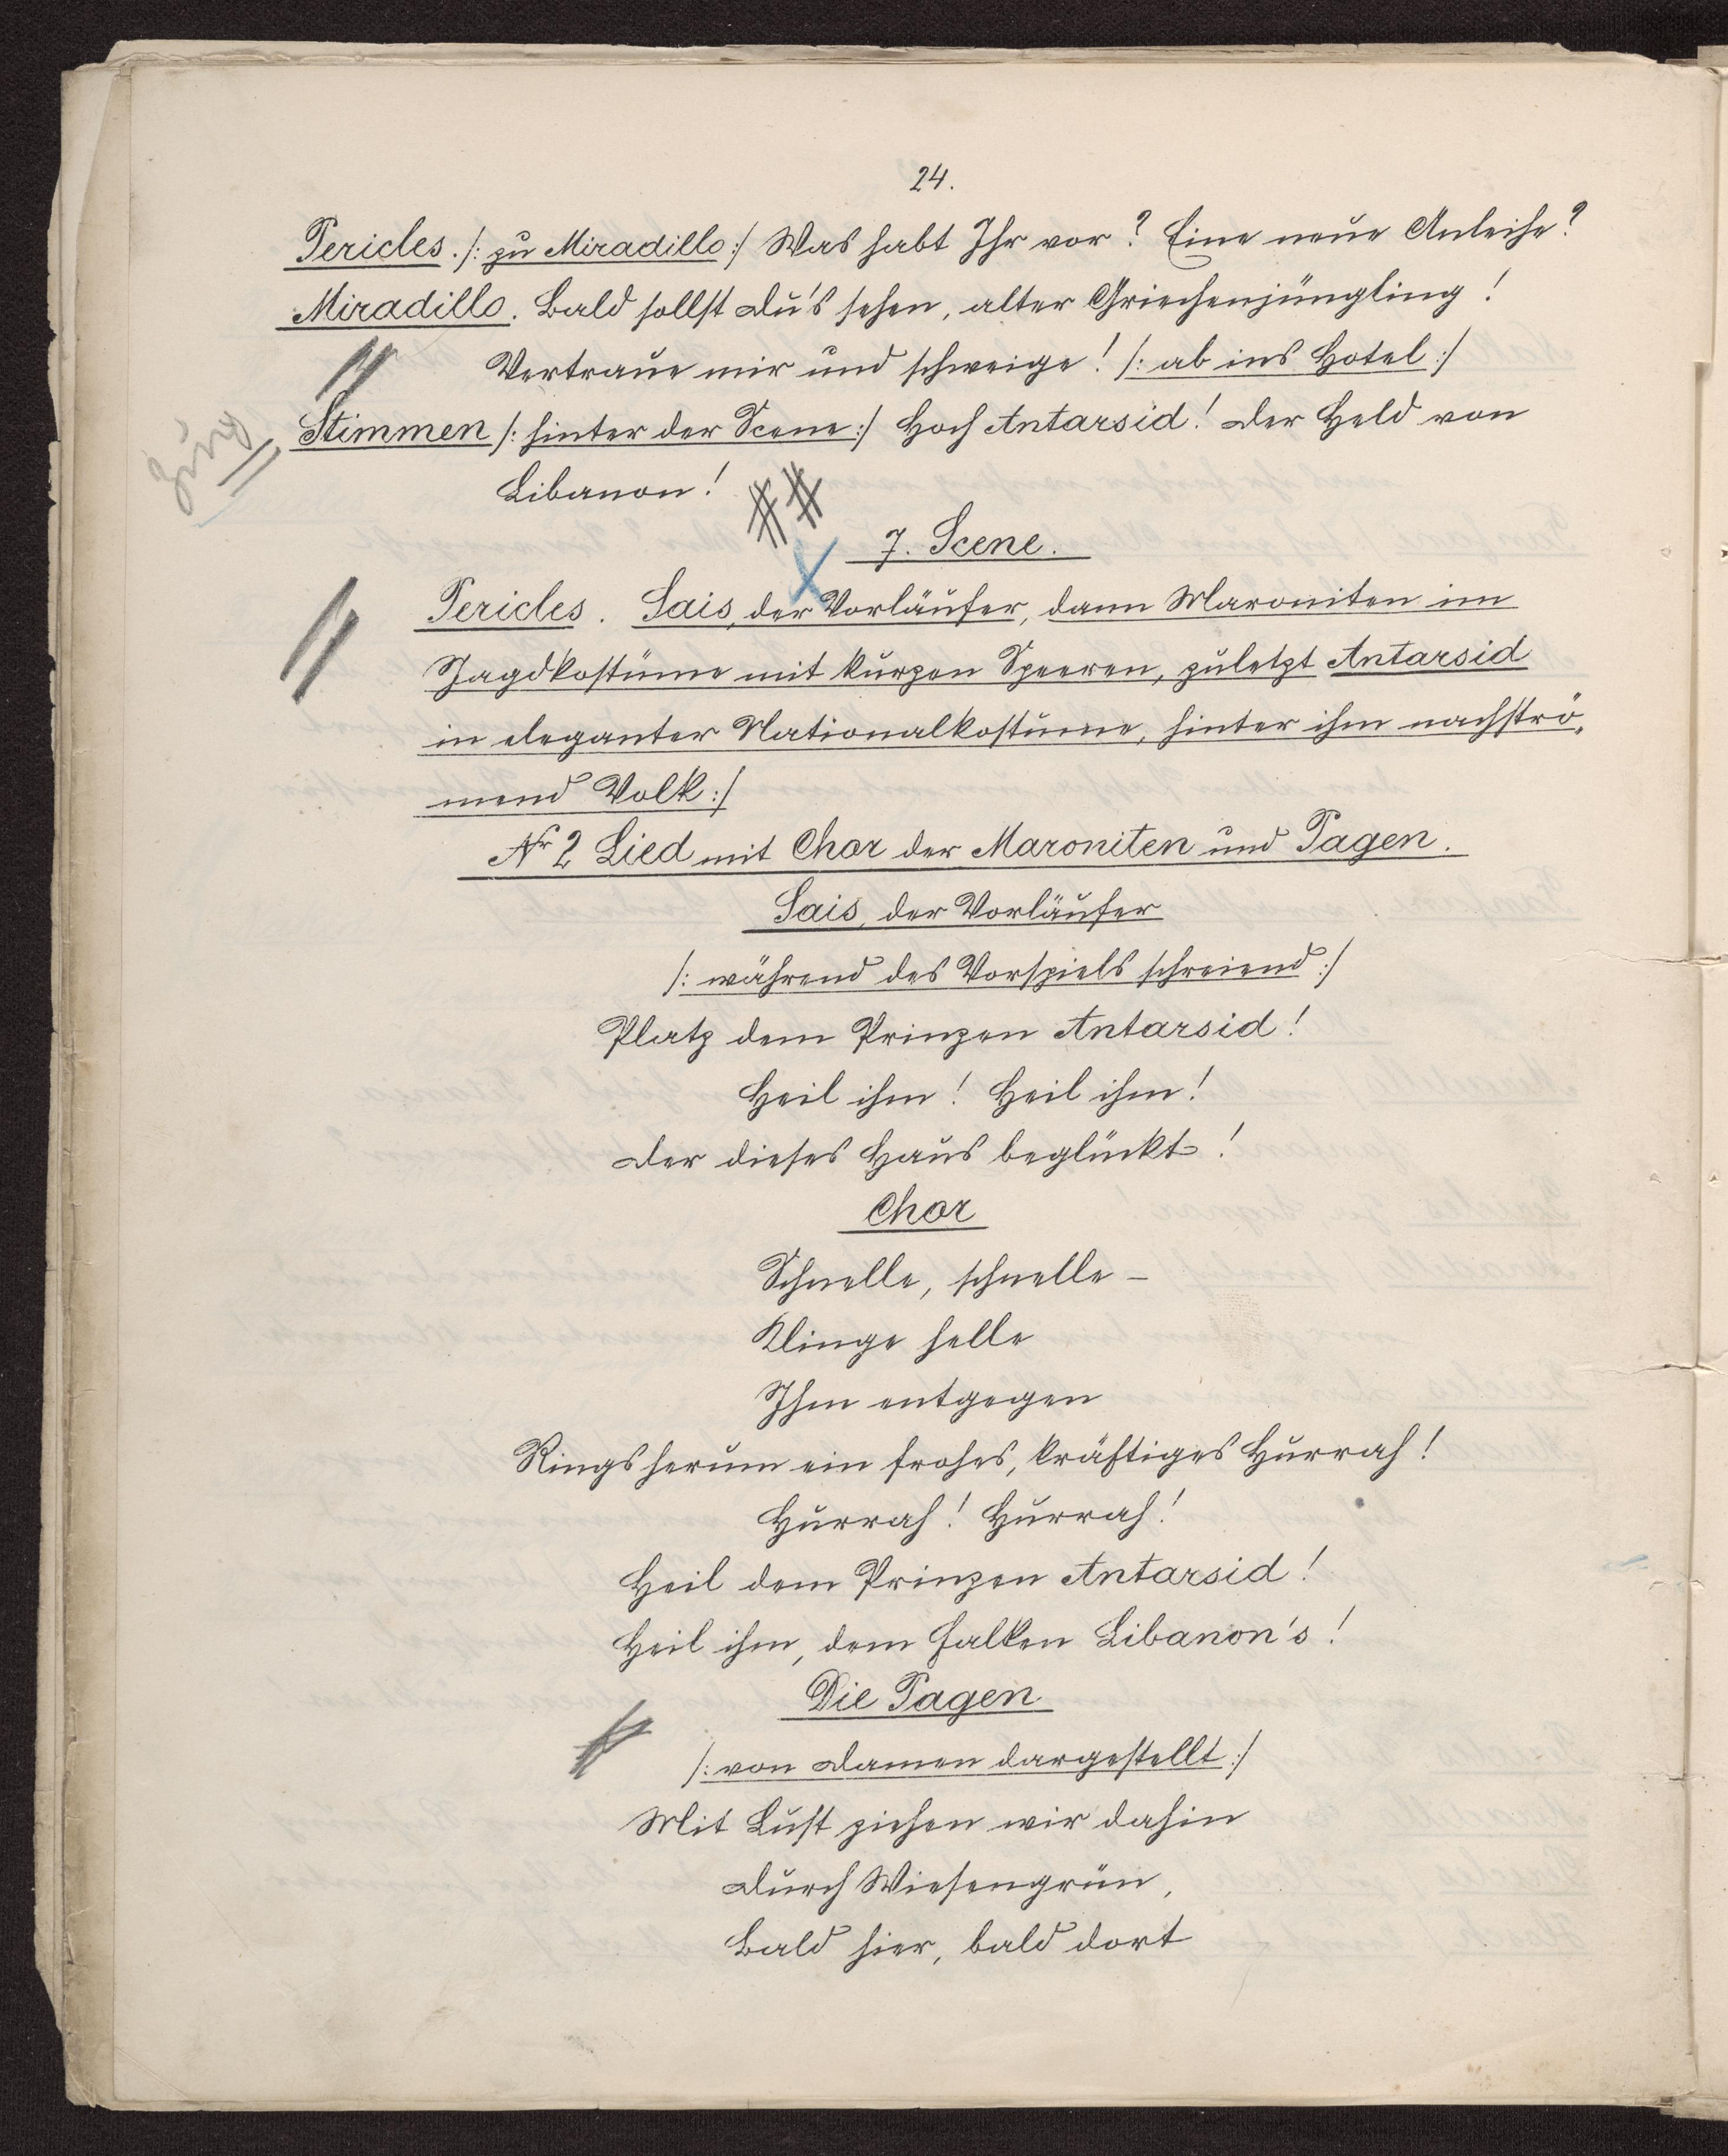 24.
Pericles. /: zu Miradillo :/ Was habt Ihr vor? Eine neue Anleihe?
Miradillo. Bald sollst du's sehen, alter Griechenjüngling!
Vertraue mir und schweige! /: ab ins Hotel :/
Zug
Stimmen /: hinter der Scene :/ Hoch Antarsid! Der Held von
Libanon!
7. Scene.
Pericles. Sais, der Vorläufer, dann Maroniten im
Jagdkostüme mit kurzen Speeren, zuletzt Antarsid
in eleganter Nationalkostüme, hinter ihm nachströ„
mend Volk :/
Nr 2 Lied mit Chor der Maroniten und Pagen.
Sais, der Vorläufer
/: während des Vorspiels schreiend :/
Platz dem Prinzen Antarsid!
Heil ihm! Heil ihm!
Der dieses Haus beglückt!
Chor
Schnelle, schnelle –
Klinge helle
Ihm entgegen
Ringsherum ein frohes, kräftiges Hurrah!
Hurrah! Hurrah!
Heil dem Prinzen Antarsid!
Heil ihm, dem Falken Libanon's!
Die Pagen
/: von Damen dargestellt :/
Mit Lust ziehen wir dahin
Durch Wiesengrün,
Bald hier, bald dort